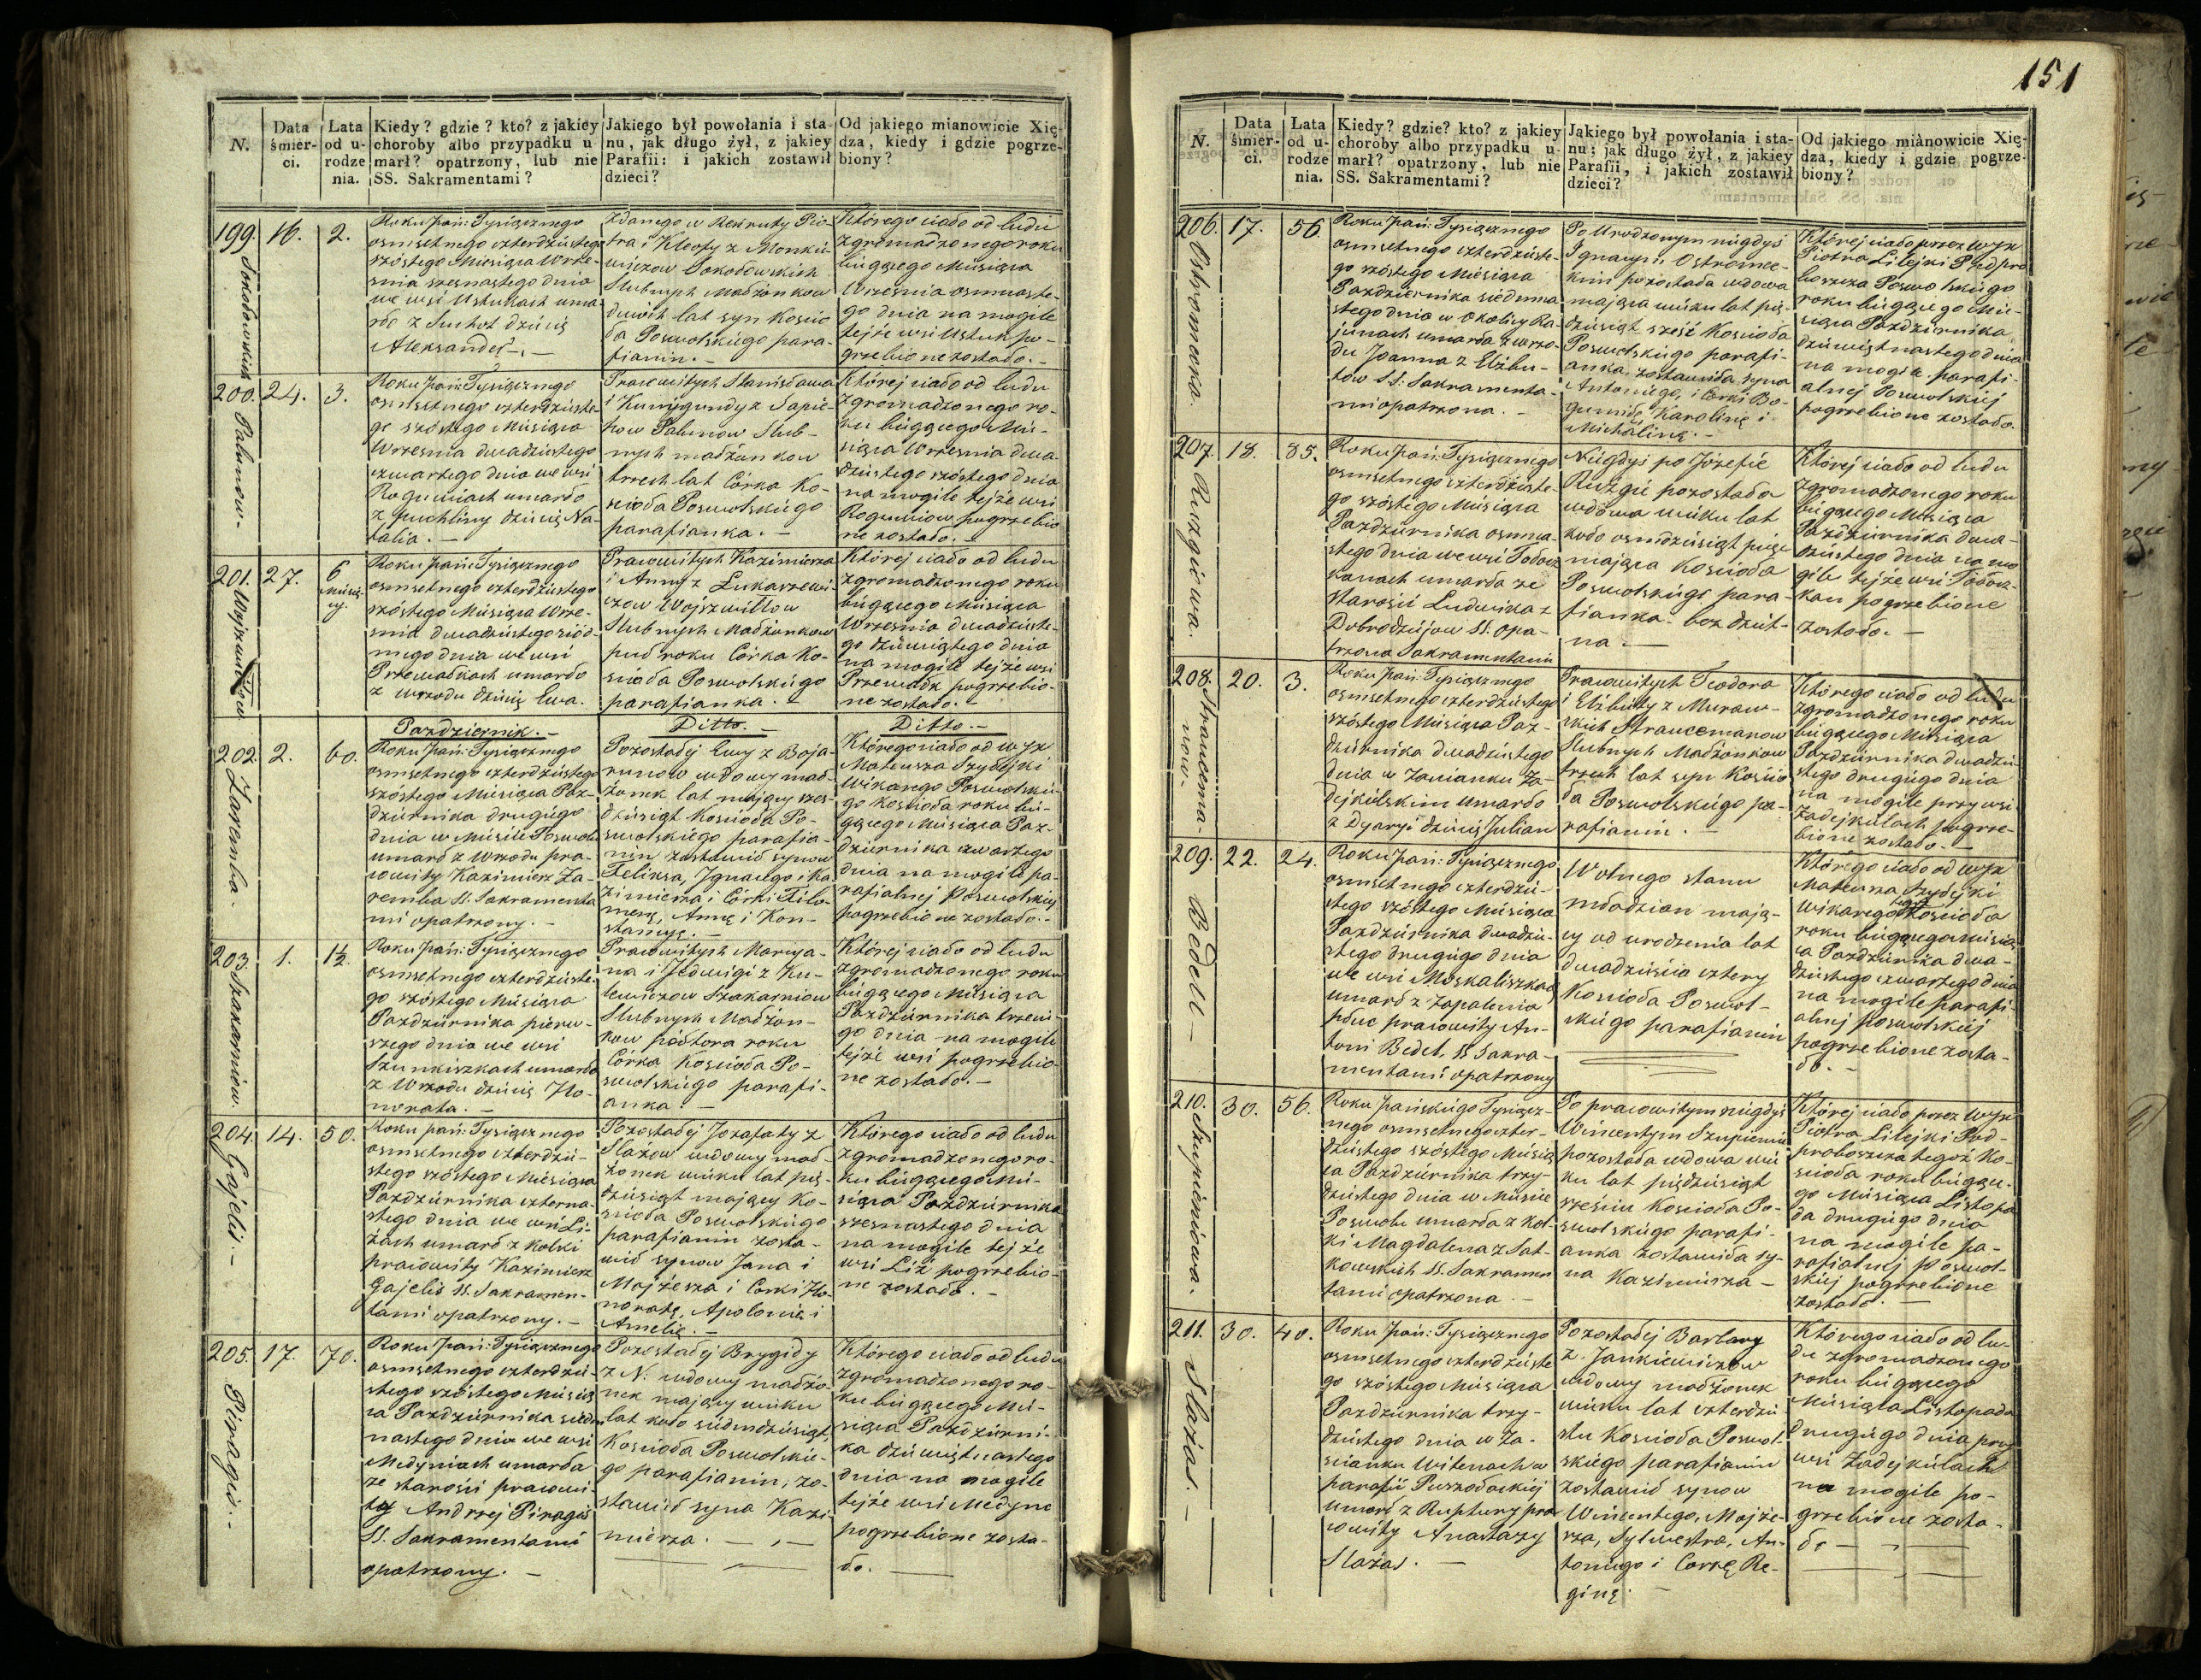 151
N.
Data śmierci.
Lata od urodzenia.
Kiedy? gdzie? kto? z jakiey
choroby albo przypadku u-
marł? opatrzony, lub nie
SS. Sakramentami?
Jakiego był powołania i sta-
nu, jak długo żył, z jakiey
Parafii: i jakich zostawił
dzieci?
Od jakiego mianowicie Xię-
dza, kiedy i gdzie pogrze-
biony?
199. Sokołowskich
16.
2.
Roku Pań: Tysiącznego
osmsetnego czterdziestego
szóstego Miesiąca Wrze-
śnia szesnastego dnia
we wsi Ustukach uma-
rło z Suchot dziecię
Aleksander. —
zdanego w Rekruty Pio-
tra i Kleofy z Monkie-
wiczow Sokołowskich
Slubnych Małżonkow
dwóch lat syn Kościo-
ła Poswolskiego para-
fianin. —
Którego ciało od ludu
zgromadzonego roku
bieżącego Miesiąca
Września osmnaste-
go dnia na mogile
tejże wsi Ustuk po-
grzebione zostało. —
200. Palunow.
24.
3.
Roku Pań: Tysiącznego
osmsetnego czterdzieste-
go szóstego Miesiąca
Września dwadziestego
czwartego dnia we wsi
Roguwiach umarło
z puchliny dziecię Na-
talia. —
Prawowitych Stanisława
i Kunegundy z Sapie-
how Palunow Slub-
nych małżonkow
trzech lat Córka Ko-
scioła Poswolskiego
parafianka. —
Której ciało od ludu
zgromadzonego ro-
ku bieżącego Mie-
siąca Września dwa-
dziestego szóstego dnia
na mogile tejże wsi
Roguwiow pogrzebio
ne zostało. —
201. Wojszwiłłow
27.
6 miesię-
cy.
Roku Pań: Tysiącznego
osmsetnego czterdziestego
szóstego Miesiąca Wrze-
śnia dwadziestego siód-
mego dnia we wsi
Przewałkach umarło
z wrzodu dziecię Ewa.
Prawowitych Kazimierza
i Anny z Łukaszewi-
czow Wojszwiłłow
Slubnych Małżonkow
puł roku Córka Ko-
scioła Poswolskiego
parafianka. —
Której ciało od ludu
zgromadzonego roku
bieżącego Miesiąca
Września dwadzieste-
go dziewiątego dnia
na mogile tejże wsi
Przewałk pogrzebio-
ne zostało. —
Pazdziernik. —
Ditto. —
Ditto. —
202. Zaremba.
2.
60.
Roku Pań: Tysiącznego
osmsetnego czterdziestego
szóstego Miesiąca Paz-
dziernika drugiego
dnia w Mieście Poswolu
umarł z Wrzodu pra-
wowity Kazimierz Za-
remba SS. Sakramenta
mi opatrzony. —
Pozostałej Ewy z Boja-
runow wdowy mał-
żonek lat mający sześ-
dziesiąt Kościoła Po-
swolskiego parafia-
nin zostawił synow
Feliksa, Ignacego i Ka
zimierza i Córki Filo-
menę, Annę i Kon-
stancyę. —
Którego ciało od Wyx
Mateusza Szydejki
Wikarego Poswolskie-
go Kościoła roku bie-
żącego Miesiąca Paz-
dziernika czwartego
dnia na mogile pa-
rafialnej Poswolskiej
pogrzebione zostało. —
203. Szakarniow.
1.
1½
Roku Pań: Tysiącznego
osmsetnego czterdzieste-
go szóstego Miesiąca
Pazdziernika pierw-
szego dnia we wsi
Szunkiszkach umarło
z Wrzodu dziecię Ho-
norata. —
Prawowitych Marcya-
na i Jedwigi z Ku-
lewiczow Szakarniow
Slubnych Małżon-
kow półtora roku
Córka Kościoła Po-
swolskiego parafi-
anka. —
Której ciało od ludu
zgromadzonego roku
bieżącego Miesiąca
Pazdziernika trzecie-
go dnia na mogile
tejże wsi pogrzebio-
ne zostało. —
204. Gajelis. —
14.
50.
Roku pań: Tysiącznego
osmsetnego czterdzie-
stego szóstego Miesiąca
Pazdziernika czterna-
stego dnia we wsi Li-
żach umarł z Kolki
prawowity Kazimierz
Gajelis SS. Sakramen-
tami opatrzony. —
Pozostałej Jozafaty z
Slażow wdowy mał-
żonek wieku lat pię-
dziesiąt mający Ko-
ścioła Poswolskiego
parafianin zosta-
wił synow Jana i
Mojżesza i Corki Ho-
noratę, Apolonię i
Amelię. —
Którego ciało od ludu
zgromadzonego ro-
ku bieżącego Mie-
siąca Pazdziernika
szesnastego dnia
na mogile tejże
wsi Liż pogrzebio-
ne zostało. —
205. Piragis. —
17.
70.
Roku Pań: Tysiącznego
osmsetnego czterdzie-
stego szóstego Miesią
ca Pazdziernika siedm
nastego dnia we wsi
Medyniach umarła
ze starości prawowi-
ty Andrzej Piragis
SS. Sakramentami
opatrzony. —
Pozostałej Brygidy
z N. wdowy małżo-
nek mający wieku
lat koło siedmdziesiąt
Kościoła Poswolskie-
go parafianin, zo-
stawił syna Kazi-
mierza. —
Którego ciało od ludu
zgromadzonego ro-
ku bieżącego Mie-
siąca Pazdzierni-
ka dziewiętnastego
dnia na mogile
tejże wsi Medyne
pogrzebione zosta-
ło. —
N.
Data śmierci.
Lata od urodzenia.
Kiedy? gdzie? kto? z jakiey
choroby albo przypadku u-
marł? opatrzony, lub nie
SS. Sakramentami?
Jakiego był powołania i sta-
nu; jak długo żył, z jakiey
Parafii, i jakich zostawił
dzieci?
Od jakiego mianowicie Xię-
dza, kiedy i gdzie pogrze-
biony?
206. Ostromecka.
17.
56.
Roku Pań: Tysiącznego
osmsetnego czterdzieste-
go szóstego Miesiąca
Pazdziernika siedmna
stego dnia w Okolicy Ra-
junach umarła z wrzo-
du Joanna z Elżbu-
tow SS. Sakramenta-
mi opatrzona. —
Po Urodzonym niegdyś
Ignacym Ostromec-
kim pozostała wdowa
mająca wieku lat pię-
dziesiąt sześć Kościoła
Poswolskiego parafi-
anka, zostawiła syna
Antoniego, i Corki Bo-
gumiłę Karolinę i
Michalinę. —
Której ciało przez Wyx
Piotra Lilejki Podpro
boszcza Poswolskiego
roku bieżącego Mie-
siąca Pazdziernika
dziewiętnastego dnia
na mogile parafi-
alnej Poswolskiej
pogrzebione zostało.
207. Ruzgiewa.
18.
85.
Roku Pań: Tysiącznego
osmsetnego czterdzieste-
go szóstego Miesiąca
Pazdziernika osmna-
stego dnia we wsi Tołocz
kanach umarła ze
starości Ludwika z
Dobrodziejow SS. opa-
trzona Sakramentami
Niegdyś po Józefie
Ruzgie pozostała
wdowa wieku lat
koło osmdziesiąt pięć
mająca Kościoła
Poswolskiego para-
fianka. bez dziet-
na. —
Której ciało od ludu
zgromadzonego roku
bieżącego Miesiąca
Pazdziernika dwa-
dziestego dnia na mo
gile tejże wsi Tołocz-
kan pogrzebione
zostało. —
208. Straucema-
now.
20.
3.
Roku Pań: Tysiącznego
osmsetnego czterdziestego
szóstego Miesiąca Paz-
dziernika dwadziestego
dnia w Zacianku Za-
dejkielskim umarło
z Dyaryi dziecię Julian
Prawowitych Teodora
i Elżbiety z Muraw-
skich Straucemanow
Slubnych Małżonkow
trzech lat syn Kościo
ła Poswolskiego pa-
rafianin. —
Którego ciało od ludu
zgromadzonego roku
bieżącego Miesiąca
Pazdziernika dwadzie
stego drugiego dnia
na mogile przy wsi
Zadejkielach pogrze-
bione zostało. —
209. Bedell —
22.
24.
Roku Pań: Tysiącznego
osmsetnego czterdzie-
stego szóstego Miesiąca
Pazdziernika dwadzie-
stego drugiego dnia
we wsi Moskaliszkach
umarł z zapalenia
płuc prawowity An-
toni Bedel, SS Sakra-
mentami opatrzony
Wolnego stanu
młodzian mają-
cy od urodzenia lat
dwadzieścia cztery
Kościoła Poswol-
skiego parafianin
Którego ciało od Wyx
Mateusza Szydejki
Wikarego tegoż Kościoła
roku bieżącego Miesią
ca Pazdziernika dwa-
dziestego czwartego dnia
na mogile parafi-
alnej Poswolskiej
pogrzebione zosta-
ło. —
210. Szupieniowa.
30.
56.
Roku Pańskiego Tysiącz-
nego osmsetnego czter-
dziestego szóstego Miesią
ca Pazdziernika trzy-
dziestego dnia w Mieście
Poswolu umarła z Kol-
ki Magdalena z Sat-
kowskich SS. Sakramen
tami opatrzona. —
Po prawowitym niegdyś
Wincentym Szupieniu
pozostała wdowa wie
ku lat pięćdziesiąt
sześciu Kościoła Po-
swolskiego parafi-
anka zostawiła sy-
na Kazimierza —
Której ciało przez Wyx
Piotra Lilejki Pod-
proboszcza tegoż Ko-
scioła roku bieżące-
go Miesiąca Listopa
da drugiego dnia
na mogile pa-
rafialnej Poswol-
skiej pogrzebione
zostało. —
211. Slażas. —
30.
40.
Roku Pań: Tysiącznego
osmsetnego czterdzieste
go szóstego Miesiąca
Pazdziernika trzy-
dziestego dnia w Za-
scianku Witenach w
parafii Puszołackiej
umarł z Ruptury pra
wowity Anastazy
Slażas. —
Pozostałej Barbary
z Jankiewiczow
wdowy małżonek
wieku lat czterdzie
stu Kościoła Poswol-
skiego parafianin
zostawił synow
Wincentego, Mojże-
sza, Sylwestra, An-
toniego i Corkę Re-
ginę. —
Którego ciało od lu-
du zgromadzonego
roku bieżącego
Miesiąca Listopada
drugiego dnia przy
wsi Zadejkielach
na mogile po-
grzebione zosta-
ło —